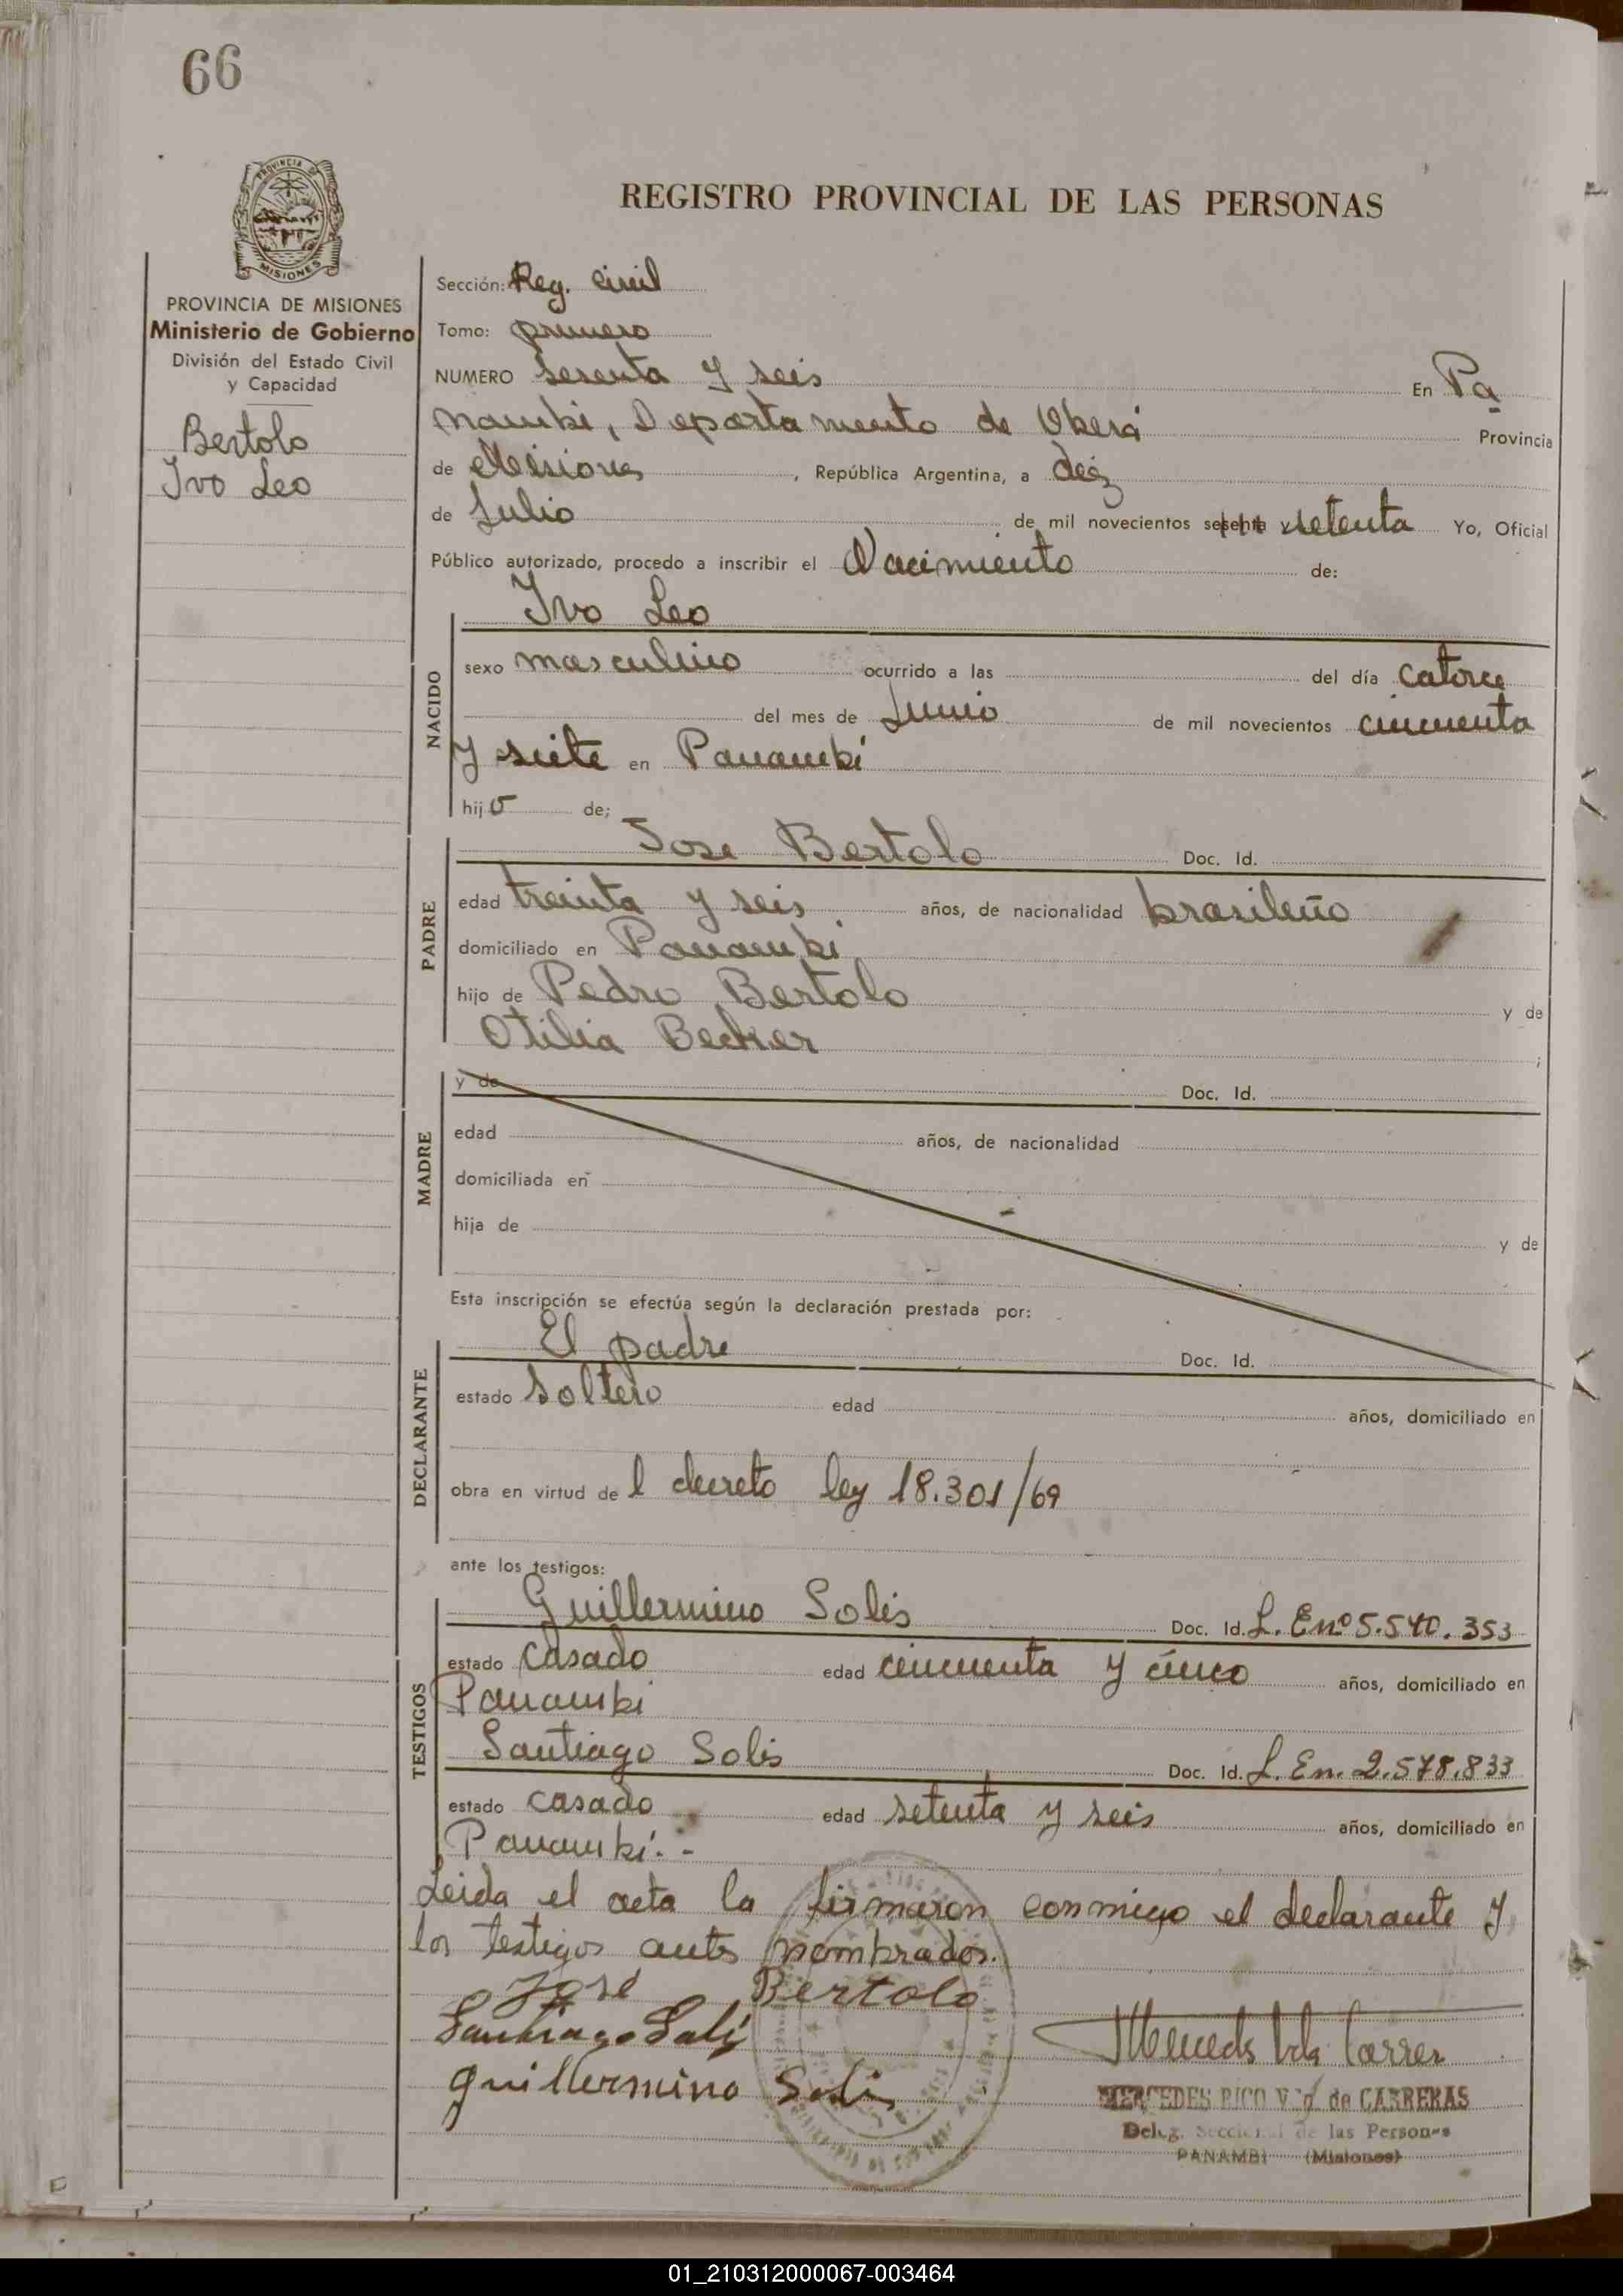 66
PROVINCIA DE
MISIONES
REGISTRO PROVINCIAL DE LAS PERSONAS
PROVINCIA DE MISIONES
Ministerio de Gobierno
División del Estado Civil
y Capacidad
Bertolo
Ivo Leo
Sección: Reg. Civil
Tomo: primero
NUMERO sesenta y seis En Pa
nambi, Departamento de Oberá Provincia
de Misiones, República Argentina, a diez
de Julio de mil novecientos sesenta setenta Yo, Oficial
Público autorizado, procedo a inscribir el Nacimiento de:
NACIDO
Ivo Leo
sexo masculino ocurrido a las del día catorce
del mes de Junio de mil novecientos cincuenta
y siete en Panambi
hijo de;
PADRE
Jose Bertolo Doc. Id.
edad treinta y seis años, de nacionalidad brasileño
domiciliado en Panambi
hijo de Pedro Bertolo y de
Otilia Becker ;
MADRE
y de Doc. Id.
edad años, de nacionalidad
domiciliada en
hija de y de
Esta inscripción se efectúa según la declaración prestada por:
DECLARANTE
El padre Doc. Id.
estado soltero edad años, domiciliado en
obra en virtud del decreto ley 18.301/69
ante los testigos:
TESTIGOS
Guillermino Solis Doc. Id. L. E nº 5.540.353
estado casado edad cincuenta y cinco años, domiciliado en
Panambi
Santiago Solis Doc. Id. L. En. 2.578.833
estado casado edad setenta y seis años, domiciliado en
Panambi.-
Leida el acta la firmaron conmigo el declarante y
los testigos antes nombrados.
José Bertolo
Santiago Soli
guillermino Soli
Mercedes Vda Carrer
MERCEDES RICO Vda de CARRERAS
Deleg. Seccional de las Personas
PANAMBI (Misiones)
01_210312000067-003464